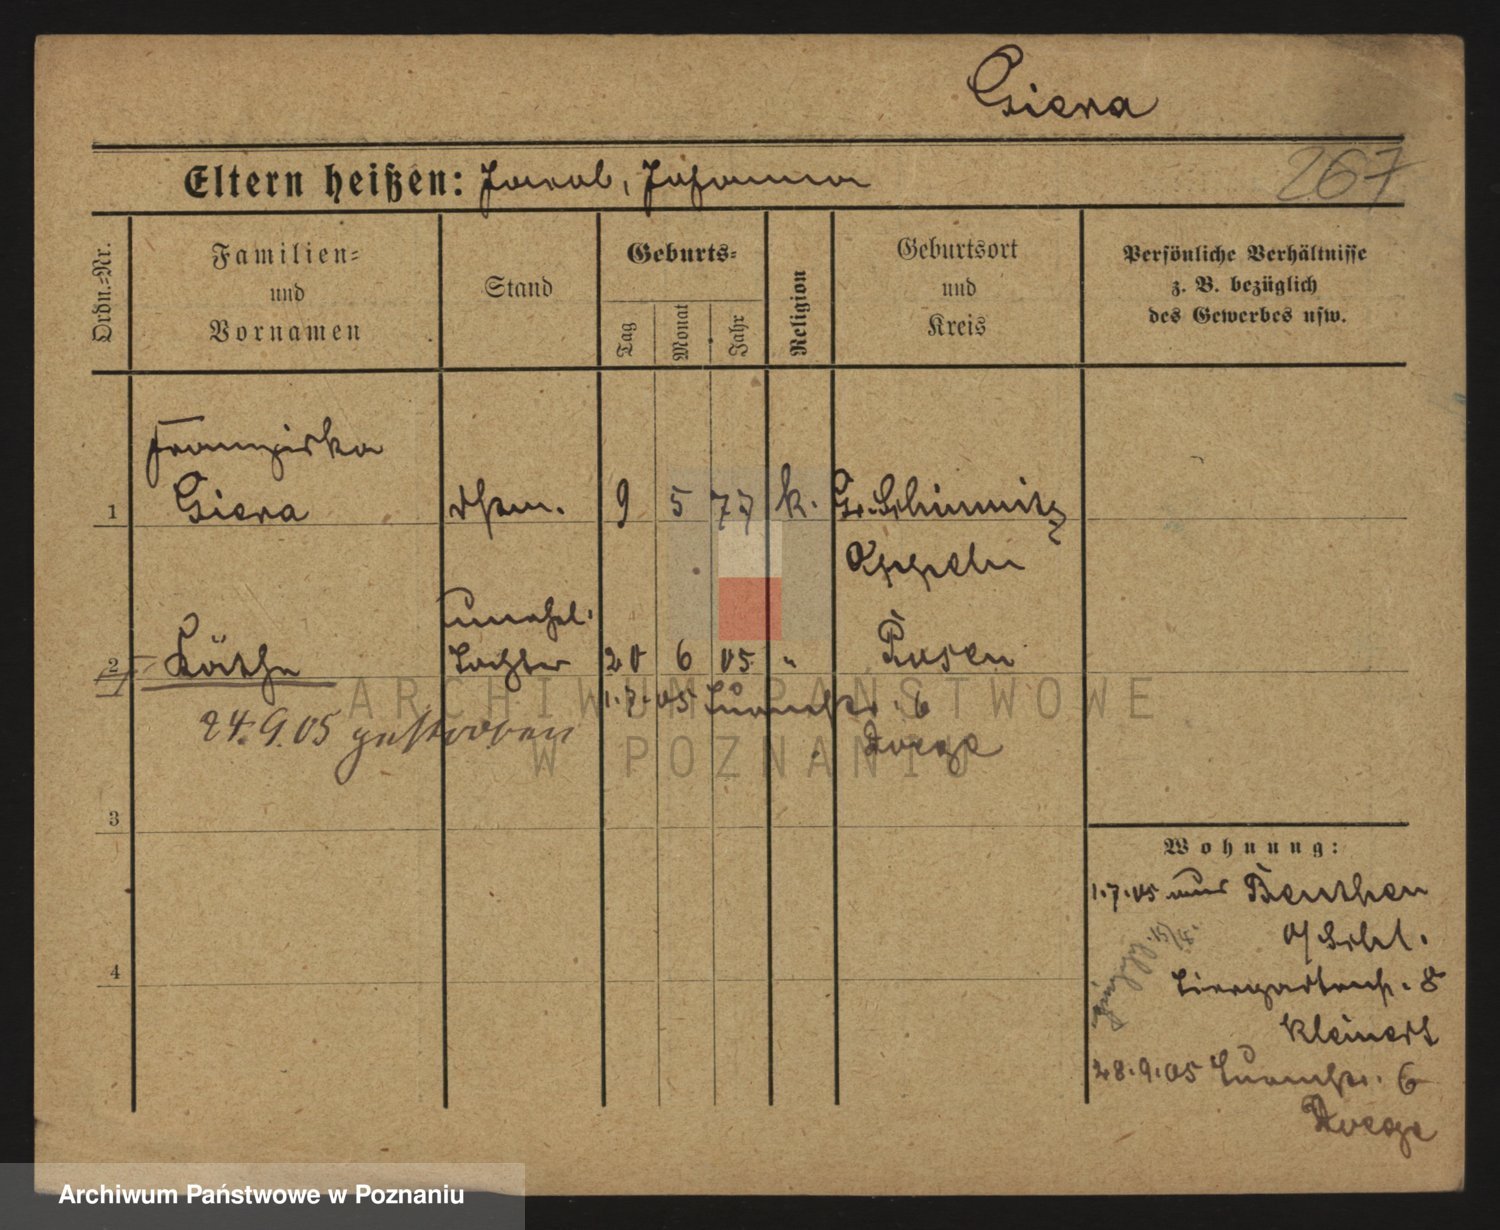 Giera
Eltern heißen: Jacob, Johanna
267
Ordn.=Nr.
Familien=
und
Vornamen
Stand
Geburts=
Tag
Monat
Jahr
Religion
Geburtsort
und
Kreis
Persönliche Verhältnisse
z. B. bezüglich
des Gewerbes usw.
Franziska
1 Giera 9 5 77 k. Gr. Schimnitz
Oppeln
unehel.
2 Käthe Tochter 20 6 05 " Posen
1.7.05 6
24.9.05 gestorben
3
Wohnung:
1.7.05 aus Beuthen
o/Schl.
4
Tiergartenstr. 8
Kleinert
28.9.05 6
ARCHIWUM PAŃSTWOWE
W POZNANIU
Archiwum Państwowe w Poznaniu